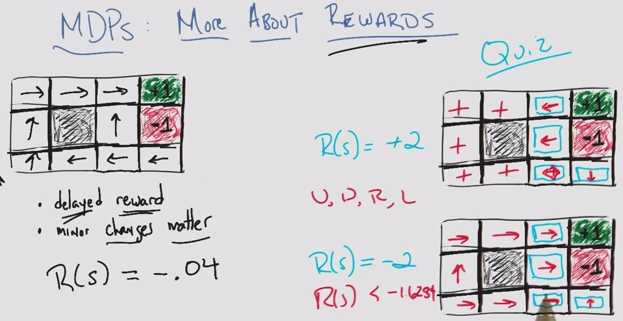 MDPs: More About Rewards
Quiz
→ → → +1
↑ ↑ -1
↑ ← ← ←
• delayed reward
• minor changes matter
R(s) = -.04
+ + ← +1
R(s) = +2
+ ← -1
+ + ↓
U, D, R, L
→ → → +1
R(s) = -2
↑ → -1
R(s) < -1.6284
→ → → ↑